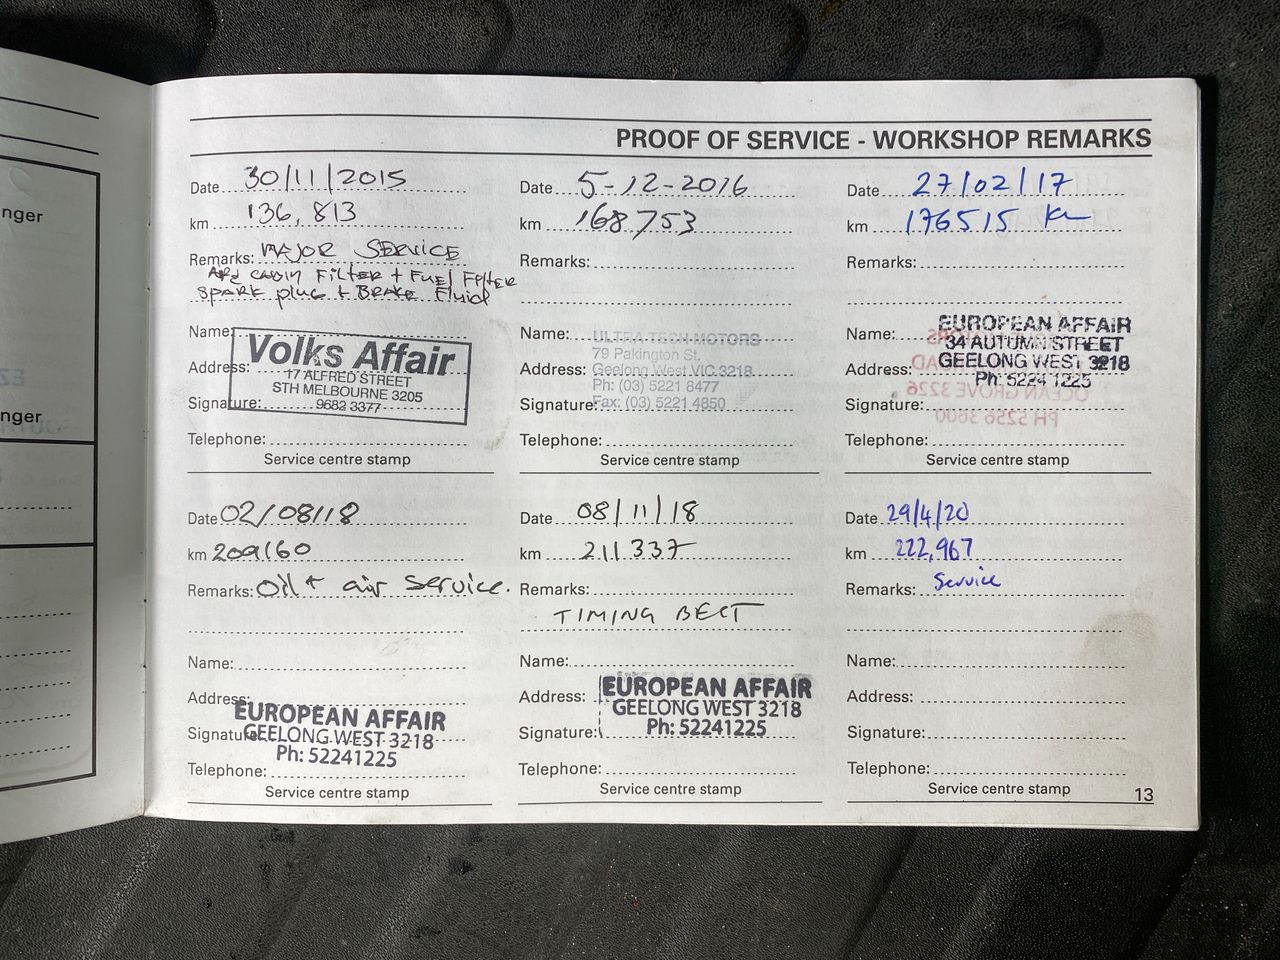 nger
nger
PROOF OF SERVICE - WORKSHOP REMARKS
Date 30/11/2015
km 136,813
Remarks: MAJOR SERVICE
AND CABIN FILTER + FUEL FILTER
SPARK plug + BRAKE Fluid
Name:
Address:
Signature:
Volks Affair
17 ALFRED STREET
STH MELBOURNE 3205
9682 3377
Telephone:
Service centre stamp
Date 5-12-2016
km 168753
Remarks:
Name: ULTRA TECH MOTORS
79 Pakington St.
Address: Geelong West VIC 3218
Ph: (03) 5221 8477
Signature: Fax: (03) 5221 4850
Telephone:
Service centre stamp
Date 27/02/17
km 176515 km
Remarks:
Name: EUROPEAN AFFAIR
34 AUTUMN STREET
Address: GEELONG WEST 3218
Ph: 5224 1225
Signature:
OCEAN GROVE 3226
PH 5256 3600
Telephone:
Service centre stamp
Date 02/08/18
km 209160
Remarks: Oil + air service.
Name:
Address:
EUROPEAN AFFAIR
Signature: GEELONG WEST 3218
Ph: 52241225
Telephone:
Service centre stamp
Date 08/11/18
km 211337
Remarks:
TIMING BELT
Name:
Address: EUROPEAN AFFAIR
GEELONG WEST 3218
Signature: Ph: 52241225
Telephone:
Service centre stamp
Date 29/4/20
km 222,967
Remarks: Service
Name:
Address:
Signature:
Telephone:
Service centre stamp
13